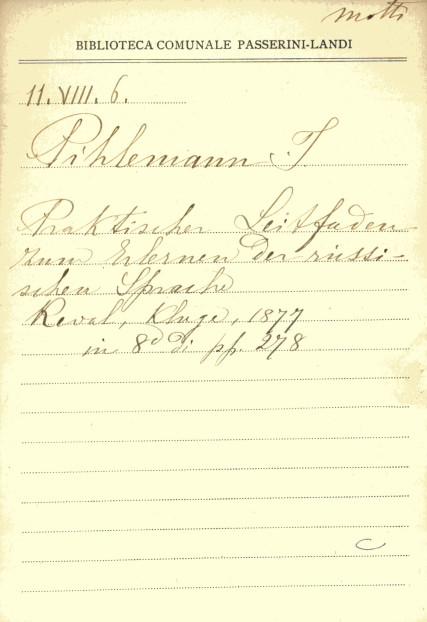 motti
BIBLIOTECA COMUNALE PASSERINI-LANDI
11. VIII. 6.
Pihlemann J
Praktischer Leitfaden
zum Erlernen der russi-
schen Sprache
Reval, Kluge, 1877
in 8º di pp. 278